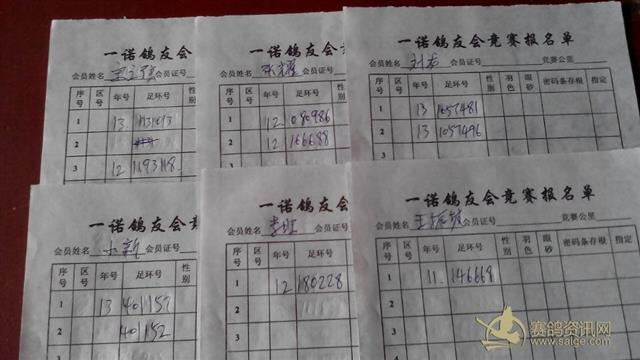 一诺鸽友会
会员姓名 会员证号
序号 区号 年号 足环号 性别
1 13
2
3 12 1193118
一诺鸽友会竞
会员姓名 张 会员证号
序号 区号 年号 足环号
1 12 090986
2 12 166688
3
一诺鸽友会竞赛报名单
会员姓名 会员证号 竞赛公里
序号 区号 年号 足环号 性别 羽色 眼砂 密码条存根 指定
1 13 1057481
2 13 1057496
3
一诺鸽友会竞
会员姓名 小新 会员证号
序号 区号 年号 足环号
1 13 401157
2 401152
一诺鸽友会
会员姓名 李 会员证号
序号 区号 年号 足环号
1 12 180228
2
一诺鸽友会竞赛报名单
会员姓名 王 会员证号 竞赛公里
序号 区号 年号 足环号 性别 羽色 眼砂 密码条存根 指定
1 11 146668
2
赛鸽资讯网
www.saige.com